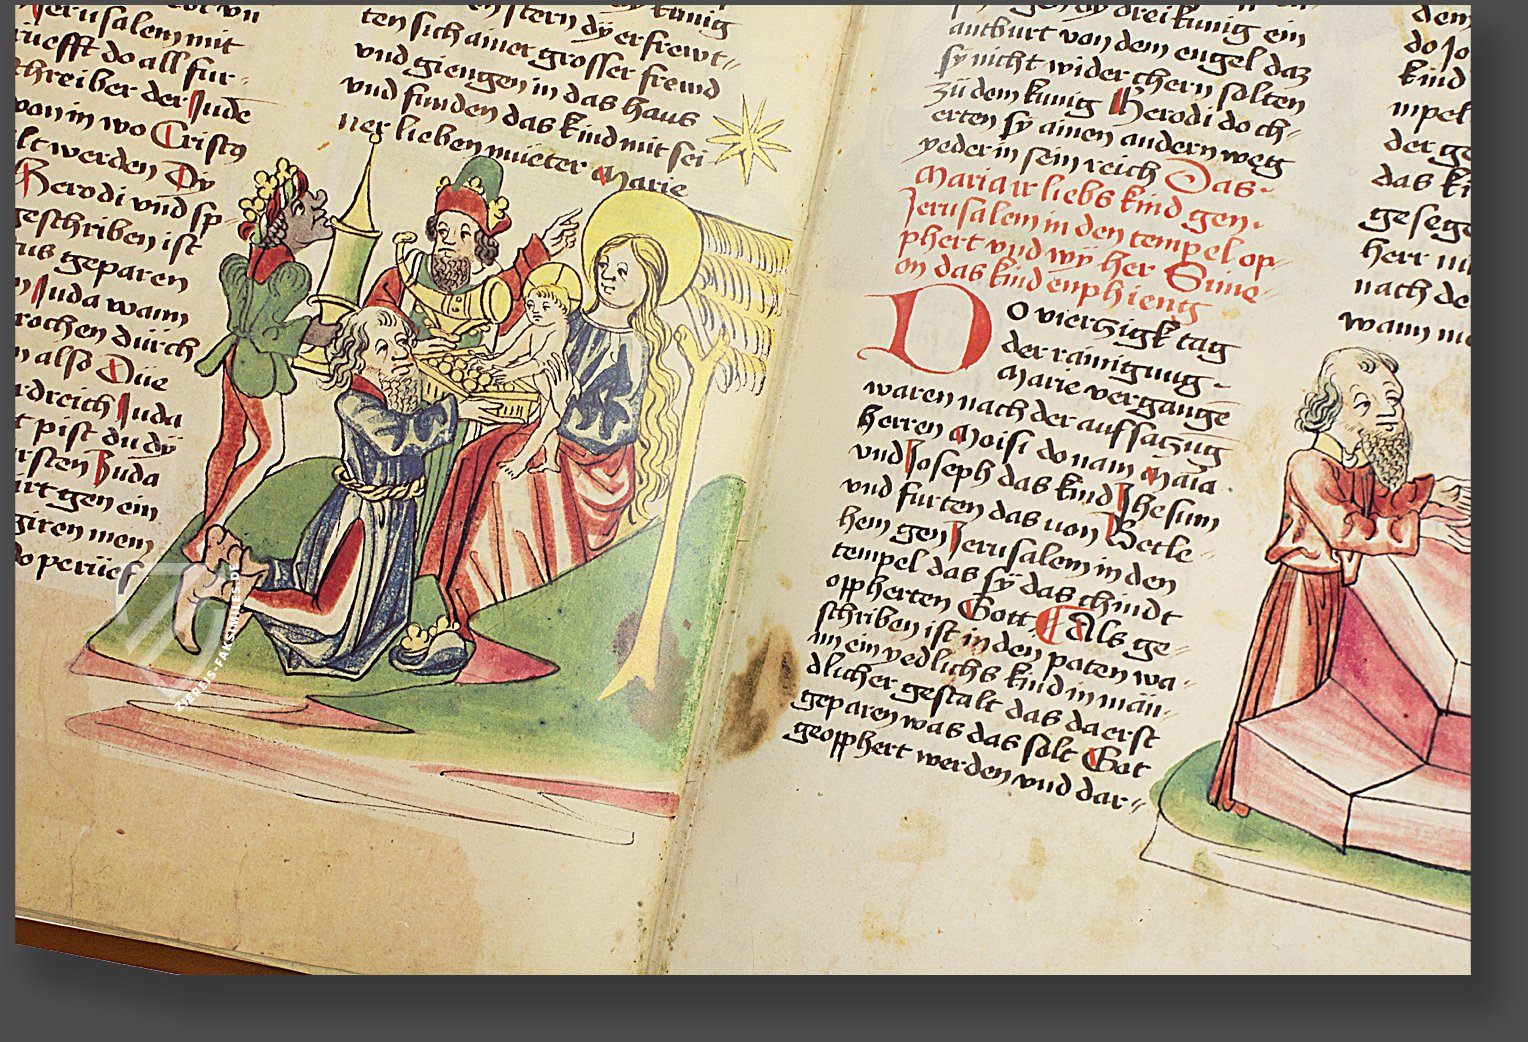 Jerusalem mit
rüefft do all für-
schreiber der Jude
von in wo Cristq
lt werden Dy
Herodi vnd sp-
geschriben ist
tus geparen
Juda wann
rochen dürch
n also Due
rdreich Juda
t pist du dy
rsten Juda
irt gen ein
giren mein
do perüef
stern dy er frewt-
ten sich ainer grosser frewd
vnd giengen in das haus
vnd funden das kind mit sei
ner lieben müeter Marie
drei kunig ein
antburt von dem engel daz
sy nicht wider chern solten
zü dem kunig Herodi do ch-
erten sy ainen andern weg
yeder in sein reich Das
Maria ir liebs kind gen
Jerusalem in den tempel op-
phert vnd wy her Sime-
on das kind enphieng
DO vierczigk tag
der rainigung
Marie vergange
waren nach der aufsaczug
herren Moisi do nam Maia
vnd Joseph das kind Jhesum
vnd furten das von Betle-
hem gen Jerusalem in den
tempel das sy das chindt
oppherten Gott Als ge-
schriben ist in den paten wa-
nn ein yedlichs kind in män-
dlicher gestalt das da erst
geparen was das solt Got
geopphert werden vnd dar-
dem
do Jo
kind
mpel
der ge
das ki
geseg
herr
nach de
wann
ZIEREIS-FAKSIMILES.DE